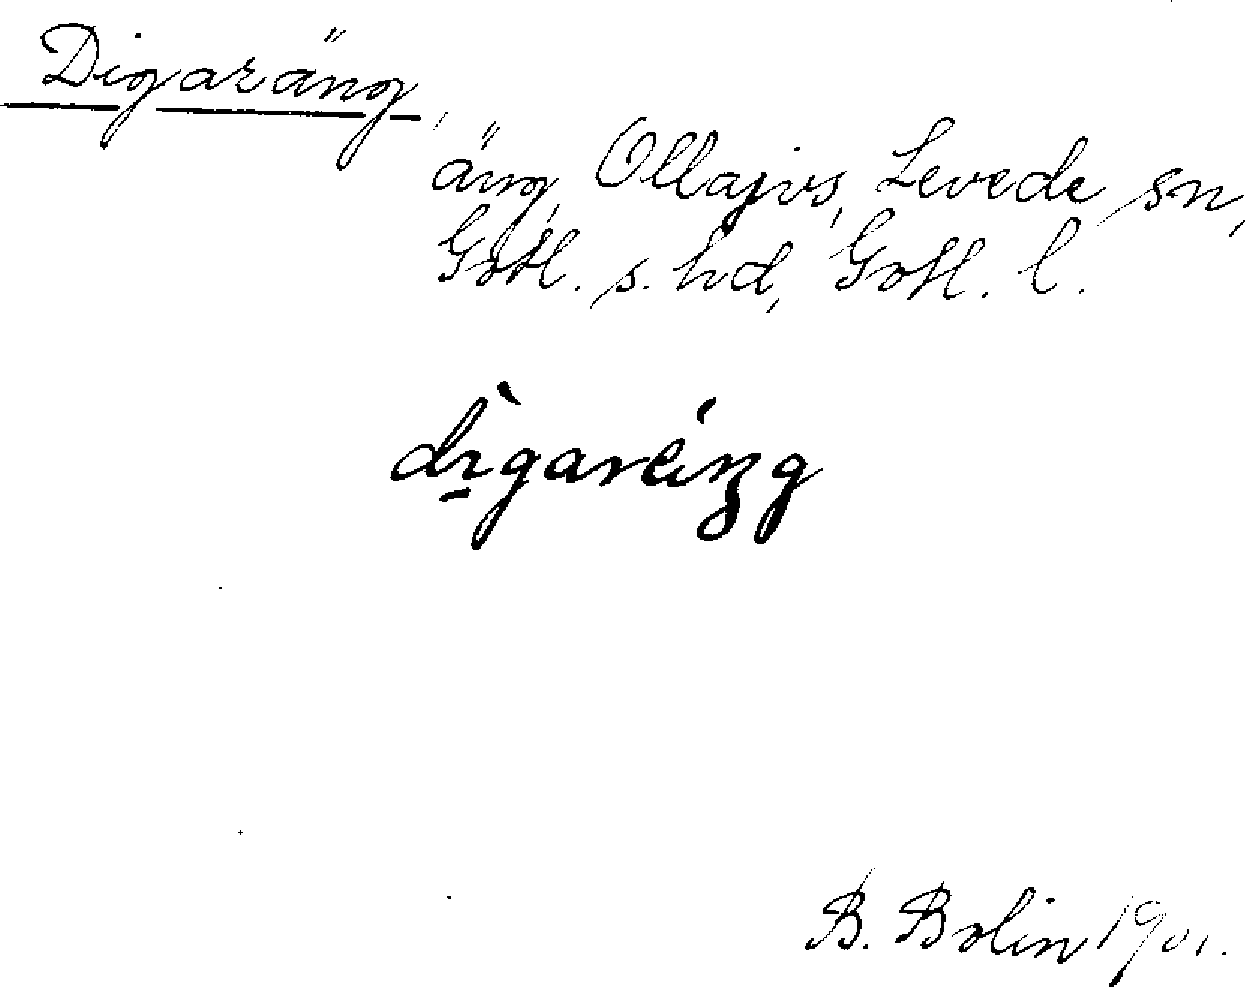 Digaräng,
äng, Ollajvs, Levede sn,
Gotl. s. hd, Gotl. l.
dı̀garéŋg
B. Bolin 1901.